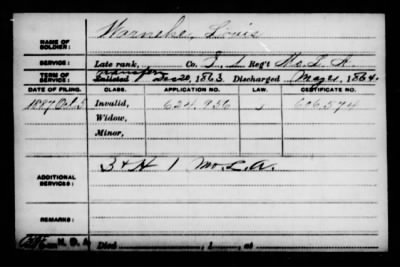 NAME OF SOLDIER: Warneke, Louis
SERVICE: Late rank, Co. L Reg't Mo. L. A.
TERM OF SERVICE: Transfer
Enlisted Dec 20, 1863 Discharged May 21, 1864.
DATE OF FILING. CLASS. APPLICATION NO. LAW. CERTIFICATE NO.
1887 Oct 5 Invalid, 624,936 606,574
Widow,
Minor,
ADDITIONAL SERVICES: 3 & H 1 Mo. L. A.
REMARKS:
N. D. A Died , 1 , at